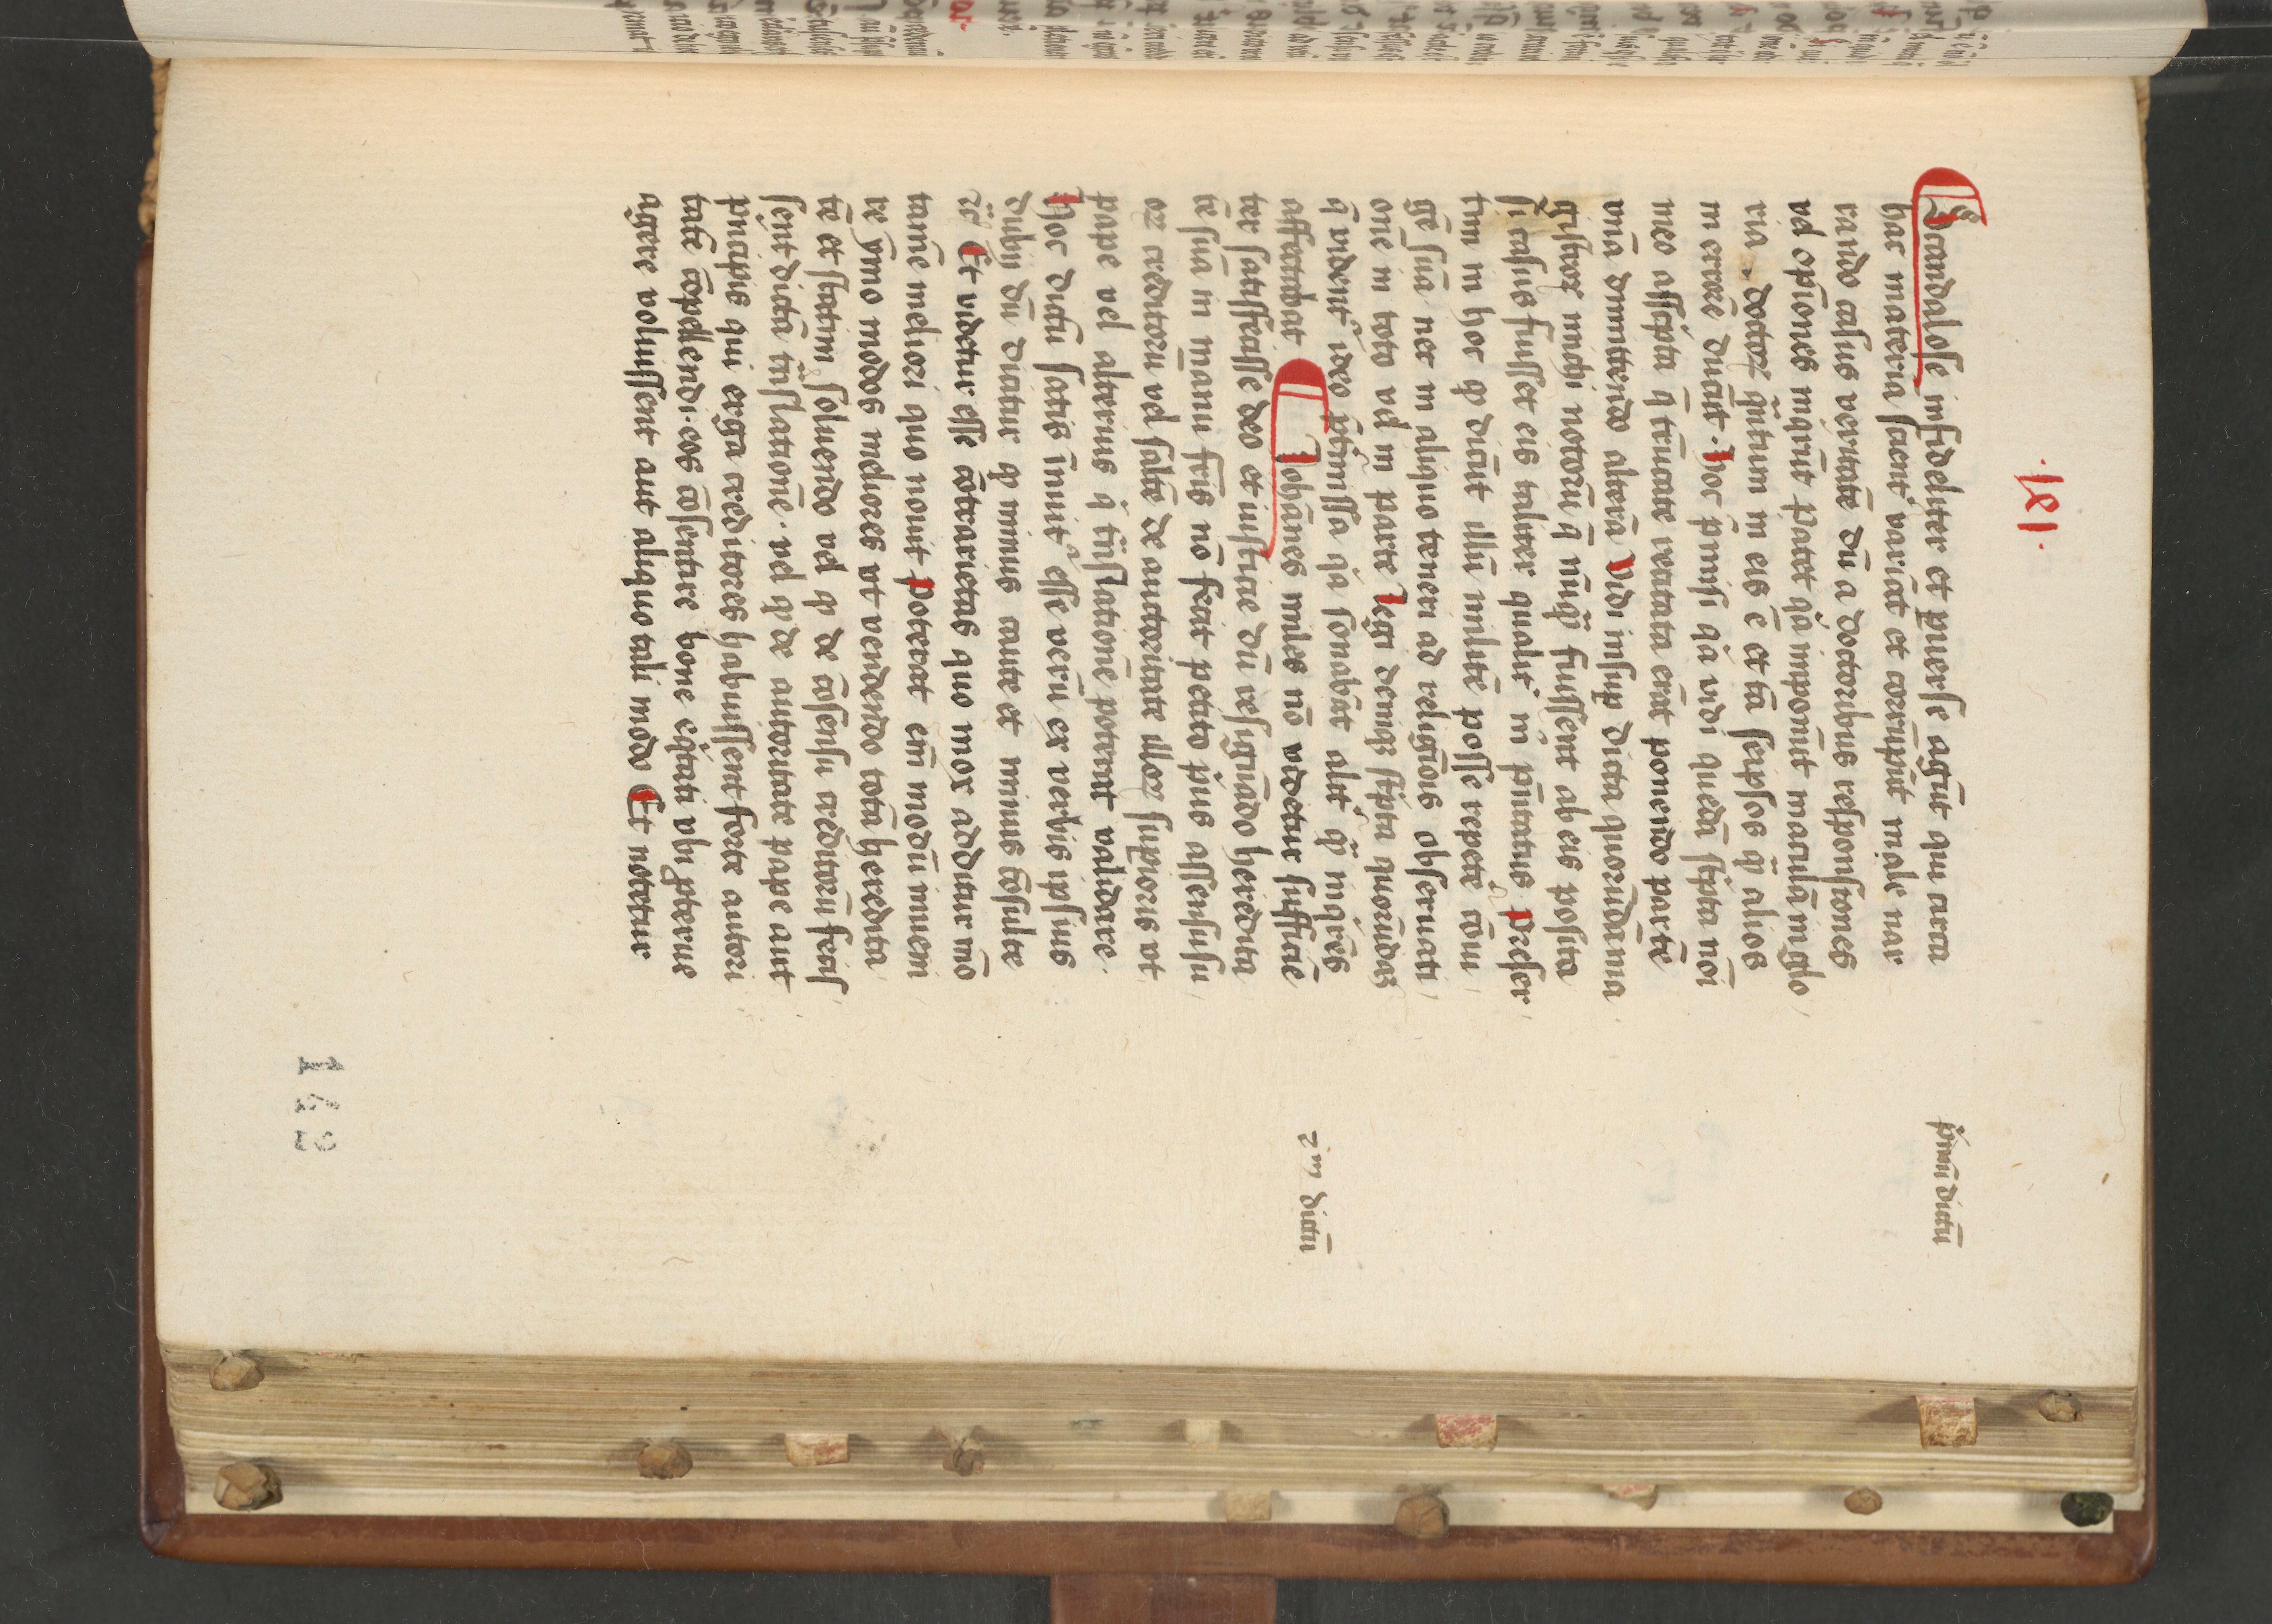 ·lxi·
Scandalose infideliter et ꝑuerse agūt qui circa
hac materia sciēter variāt et corrūpūt male nar
rando casus veritatē dū a doctoribus responsiones
vel opiōnes inqrūt Patet qa imponūt maculā inglo
ria · doctoꝝ q̄ntum in eis ē et tā seip̄os q̄ alios
in errorē ducūt · hoc p̄misi qa vidi quedā scripta nōi
meo asscripta q̄ trūcate recitata erāt ponendo partē
vnā dimittendo alterā Vidi insuꝑ dicta quorūdā ma
gistroꝝ michi notorū q̄ nūq̄ fuissent ab eis posita
si casus fuisset eis taliter qualiter in p̄ntatus Presēr
tim in hoc ꝙ dicūt illū militē posse repetē coniu
gē suā nec in aliquo teneri ad religiōis obseruati
onē in toto vel in parte Legi deniqꝫ scripta quorūdaꝫ
q̄ vident̄ ideo p̄tmissa qa sonabāt aliter q̄ inqrēs
affectabat Johānes miles nō videtur sufficiē
ter satisfecisse deo et iusticie dū resignādo heredita
tē suā in manu fr̄is nō fecit petito prius assensu su
oꝝ creditorū vel saltē de auctoritate illoꝝ superioris vt
pape vel alterius q̄ trāslationē poterat validare ·
Hoc dictū satis innuit esse verū ex verbis ipsius
dubij dū dicitur ꝙ minus caute et minus cōsulte
rē Et videtur esse cōtrarietas quo mox additur mō
tamē meliori quo nouit Poterat em̄ modū inuem
re ymo modos meliores vt vendendo totā heredita
tē et statim soluendo vel ꝙ de cōsensu creditorū fecis
sent dictā trāslationē · vel ꝙ de auctoritate pape aut
principis qui erga creditores habuissent forte auctori
tatē cōpellendi · eos cōsentire bone eqtati vbi ꝓterue
agere voluissent aut aliquo tali modo Et notetur
primū dictū
2m dictū
142